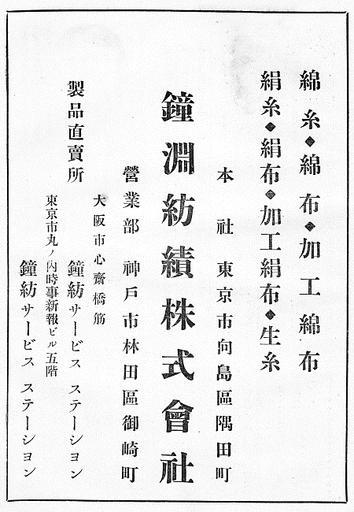 綿糸・綿布・加工綿布
絹糸・絹布・加工絹布・生糸
本社 東京市向島區隅田町
鐘淵紡績株式會社
營業部 神戸市林田區御崎町
製品直賣所
大阪市心齋橋筋
鐘紡サービス ステーション
東京市丸ノ內時事新報ビル五階
鐘紡サービス ステーション